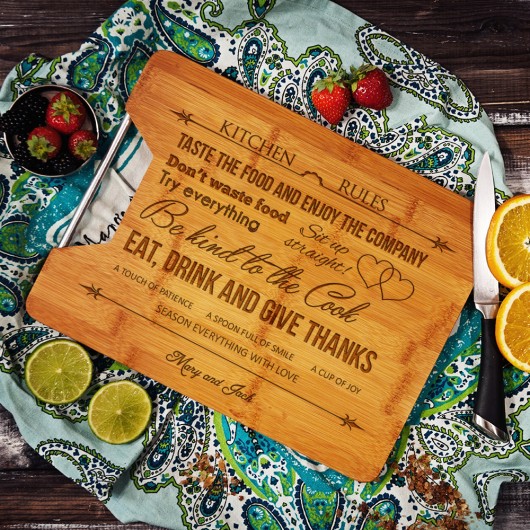 KITCHEN RULES
TASTE THE FOOD AND ENJOY THE COMPANY
Don't waste food
Try everything
Sit up
straight!
Be kind to the Cook
EAT, DRINK AND GIVE THANKS
A TOUCH OF PATIENCE
A SPOON FULL OF SMILE
A CUP OF JOY
SEASON EVERYTHING WITH LOVE
Mary and Jack